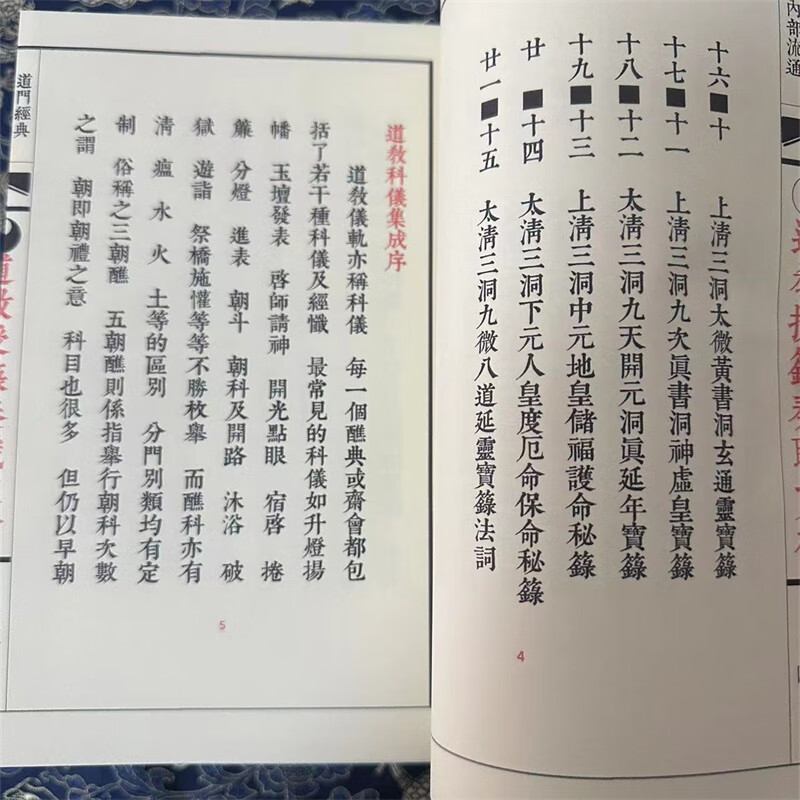 內部流通
十六■十 上清三洞太微黃書洞玄通靈寶籙
十七■十一 上清三洞九次眞書洞神虛皇寶籙
十八■十二 太清三洞九天開元洞眞延年寶籙
十九■十三 上清三洞中元地皇儲福護命秘籙
廿■十四 太清三洞下元人皇度厄命保命秘籙
廿一■十五 太清三洞九微八道延靈寶籙法詞
4
道教科儀集成序
道教儀軌亦稱科儀 每一個醮典或齋會都包
括了若干種科儀及經懺 最常見的科儀如升燈揚
幡 玉壇發表 啓師請神 開光點眼 宿啓 捲
簾 分燈 進表 朝斗 朝科及開路 沐浴 破
獄 遊詣 祭橋施懽等等不勝枚舉 而醮科亦有
清 瘟 水 火 土等的區別 分門別類均有定
制 俗稱之三朝醮 五朝醮則係指舉行朝科次數
之謂 朝即朝禮之意 科目也很多 但仍以早朝
5
道門經典